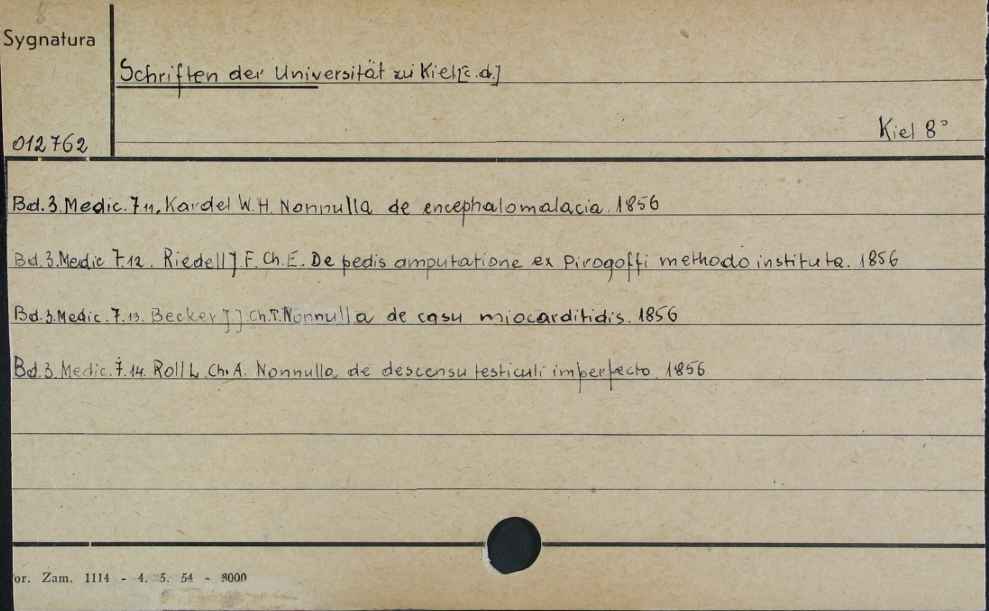 Sygnatura
Schriften der Universität zu Kiel [c.d.]
012762
Kiel 8°
Bd. 3. Medic. 7 11. Kardel W. H. Nonnulla de encephalomalacia. 1856
Bd. 3. Medic 7.12. Riedell J. F. Ch. E. De pedis amputatione ex Pirogoffi methodo instituta. 1856
Bd. 3. Medic. 7. 13. Becker J J Ch. T. Nonnulla de casu miocarditidis. 1856
Bd. 3. Medic. 7. 14. Roll L. Ch. A. Nonnulla de descensu testiculi imperfecto. 1856
or. Zam. 1114 - 4. 5. 54 - 8000